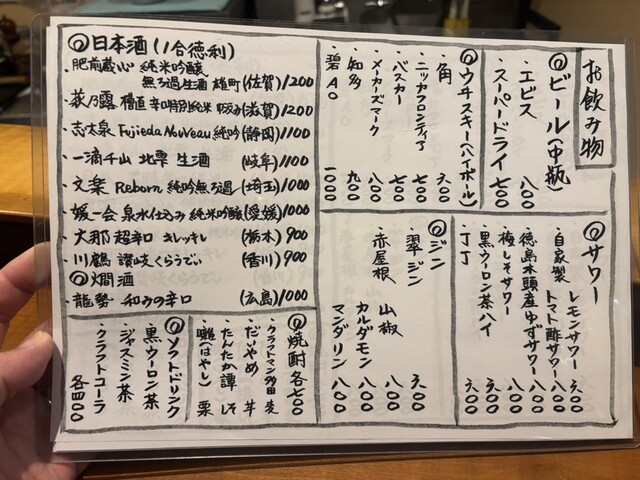 お飲み物
◎ビール(中瓶)
・エビス 八〇〇
・スーパードライ 七〇〇
◎ウイスキー(ハイボール)
・角 六〇〇
・ニッカフロンティア 七〇〇
・バスカー 七〇〇
・メーカーズマーク 八〇〇
・知多 九〇〇
・碧Ao 一〇〇〇
◎日本酒(1合徳利)
・肥前蔵心 純米吟醸
無ろ過生酒 雄町(佐賀)1200
・萩乃露 槽直 辛口特別純米 中汲み(滋賀)1200
・志太泉 Fujieda Nouveau 純吟(静岡)1100
・一滴千山 北雫 生酒 (岐阜)1100
・文楽 Reborn 純吟無ろ過(埼玉)1000
・媛一会 泉水仕込み 純米吟醸(愛媛)1000
・大那 超辛口 キレッキレ (栃木)900
・川鶴 讃岐くらうでぃ (香川)900
◎燗酒
・龍勢 和みの辛口 (広島)1000
◎サワー
・自家製 レモンサワー 六〇〇
トマト酢サワー 八〇〇
・徳島木頭産ゆずサワー 八〇〇
・梅しそサワー 八〇〇
・黒ウーロン茶ハイ 六〇〇
・丁丁 六〇〇
◎ジン
・翠ジン 六〇〇
・赤屋根 山椒 八〇〇
カルダモン 八〇〇
マンダリン 八〇〇
◎焼酎 各七〇〇
・クラフトマン多田 麦
・だいやめ 芋
・たんたか譚 しそ
・囃(はやし) 栗
◎ソフトドリンク
・黒ウーロン茶
・ジャスミン茶
・クラフトコーラ
各四〇〇